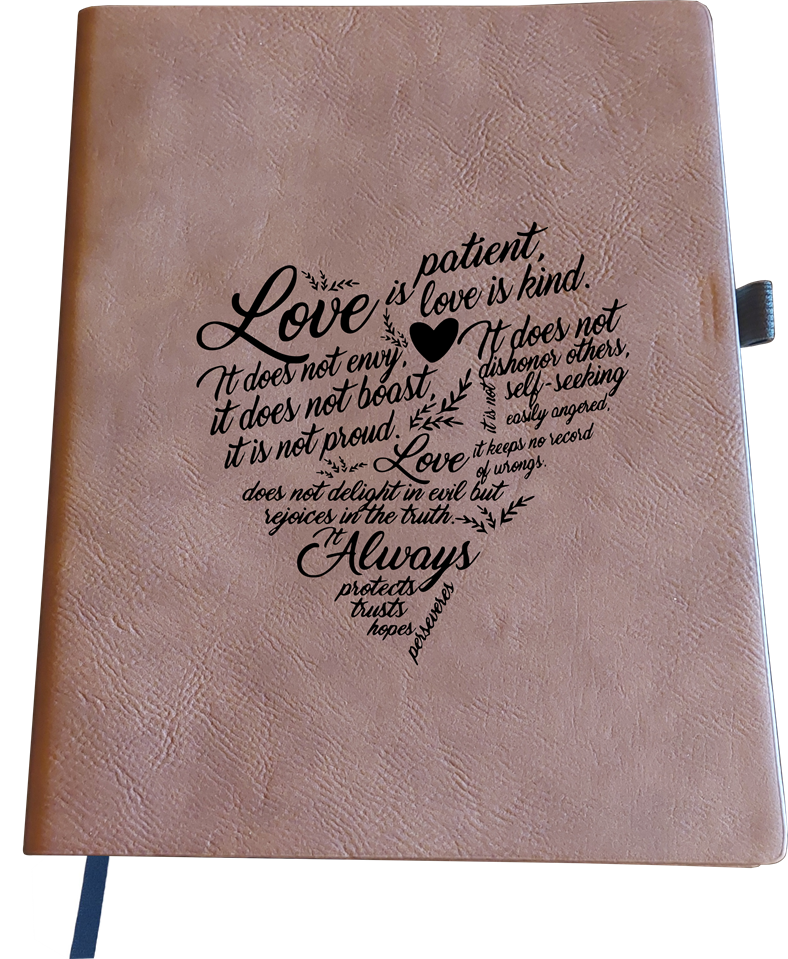 Love is patient,
love is kind.
It does not envy,
it does not boast,
it is not proud.
It does not
dishonor others,
it is not
self-seeking
easily angered,
it keeps no record
of wrongs.
Love
does not delight in evil but
rejoices in the truth.
It
Always
protects
trusts
hopes
perseveres